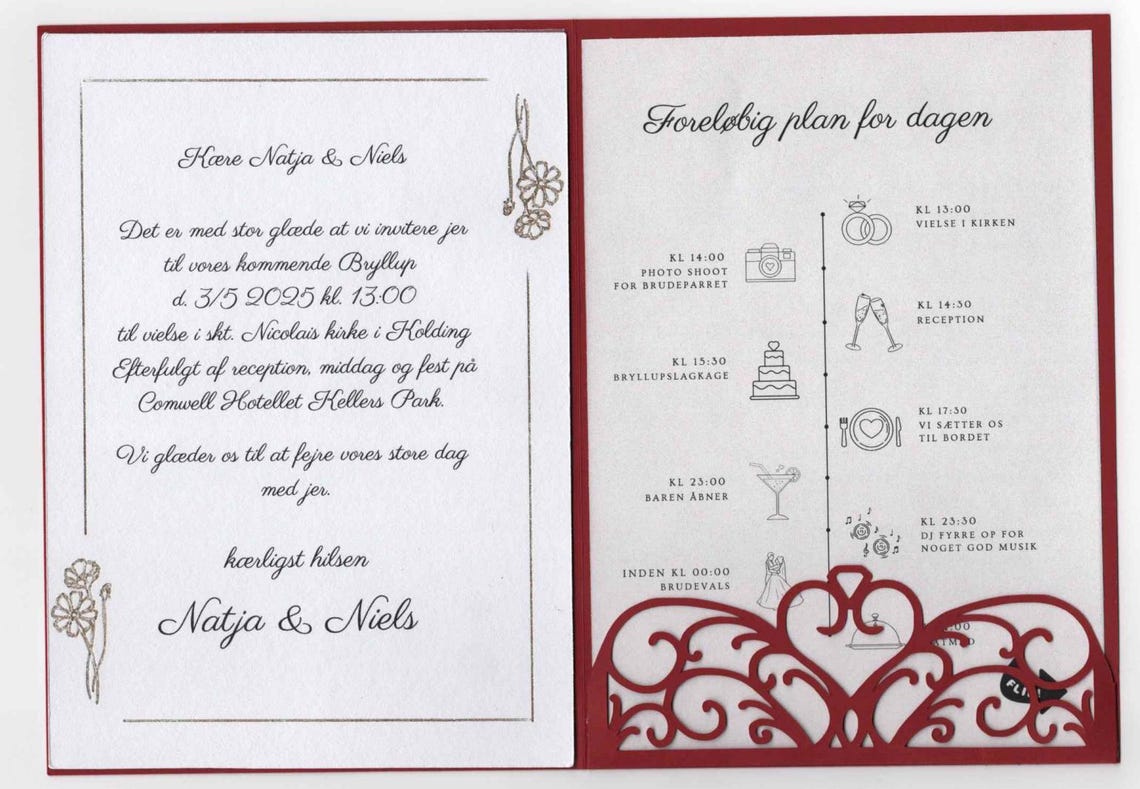 Kære Natja & Niels
Det er med stor glæde at vi invitere jer
til vores kommende Bryllup
d. 3/5 2025 kl. 13:00
til vielse i skt. Nicolais kirke i Kolding
Efterfulgt af reception, middag og fest på
Comwell Hotellet Kellers Park.
Vi glæder os til at fejre vores store dag
med jer.
kærligst hilsen
Natja & Niels
Foreløbig plan for dagen
KL 13:00
VIELSE I KIRKEN
KL 14:00
PHOTO SHOOT
FOR BRUDEPARRET
KL 14:30
RECEPTION
KL 15:30
BRYLLUPSLAGKAGE
KL 17:30
VI SÆTTER OS
TIL BORDET
KL 23:00
BAREN ÅBNER
KL 23:30
DJ FYRRE OP FOR
NOGET GOD MUSIK
INDEN KL 00:00
BRUDEVALS